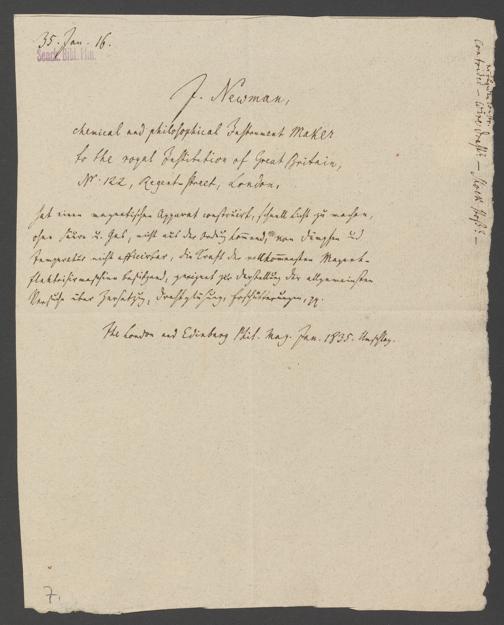 35. Jan. 16.
Senck. Bibl. Ffm.
J. Newman,
chemical and philosophical Instrument Maker
to the royal Institution of Great Britain,
No. 122, Regent-street, London,
hat einen magnetischen Apparat construirt, schnell Licht zu machen,
ohne Säure u. Gas, nicht aus der Ordng kommend, von Dämpfen und
Temperatur nicht afficirbar, die Kraft der vollkommensten Magnet-
Elektrisirmaschinen besitzend, geeignet zur Darstellung der allgemeinsten
Versuche über Zersetzg, Drathglühung, Erschütterungen, pp.
The London and Edinburg Phil. Mag. Jan. 1835. Umschlag.
7.